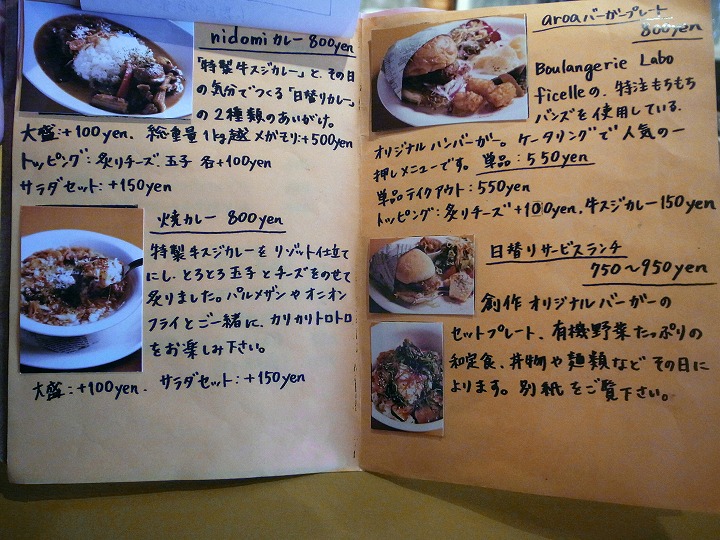 nidomi カレー 800yen
「特製牛スジカレー」と、その日
の気分でつくる「日替りカレー」
の2種類のあいがけ。
大盛:+100yen. 総重量1kg越メガモリ:+500yen
トッピング:炙りチーズ 玉子 各+100yen
サラダセット:+150yen
焼カレー 800yen
特製牛スジカレーをリゾット仕立て
にし、とろとろ玉子とチーズをのせて
炙りました。パルメザンやオニオン
フライとご一緒に、カリカリトロトロ
をお楽しみ下さい。
大盛:+100yen. サラダセット:+150yen
aroaバーガープレート
800yen
Boulangerie Labo
ficelleの、特注もちもち
バンズを使用している.
オリジナルハンバーガー。ケータリングで人気の一
押しメニューです。単品:550yen
単品テイクアウト:550yen
トッピング:炙りチーズ+100yen.牛スジカレー150yen
日替りサービスランチ
750〜950yen
創作オリジナルバーガーの
セットプレート、有機野菜たっぷりの
和定食、丼物や麺類など その日に
よります。別紙をご覧下さい。